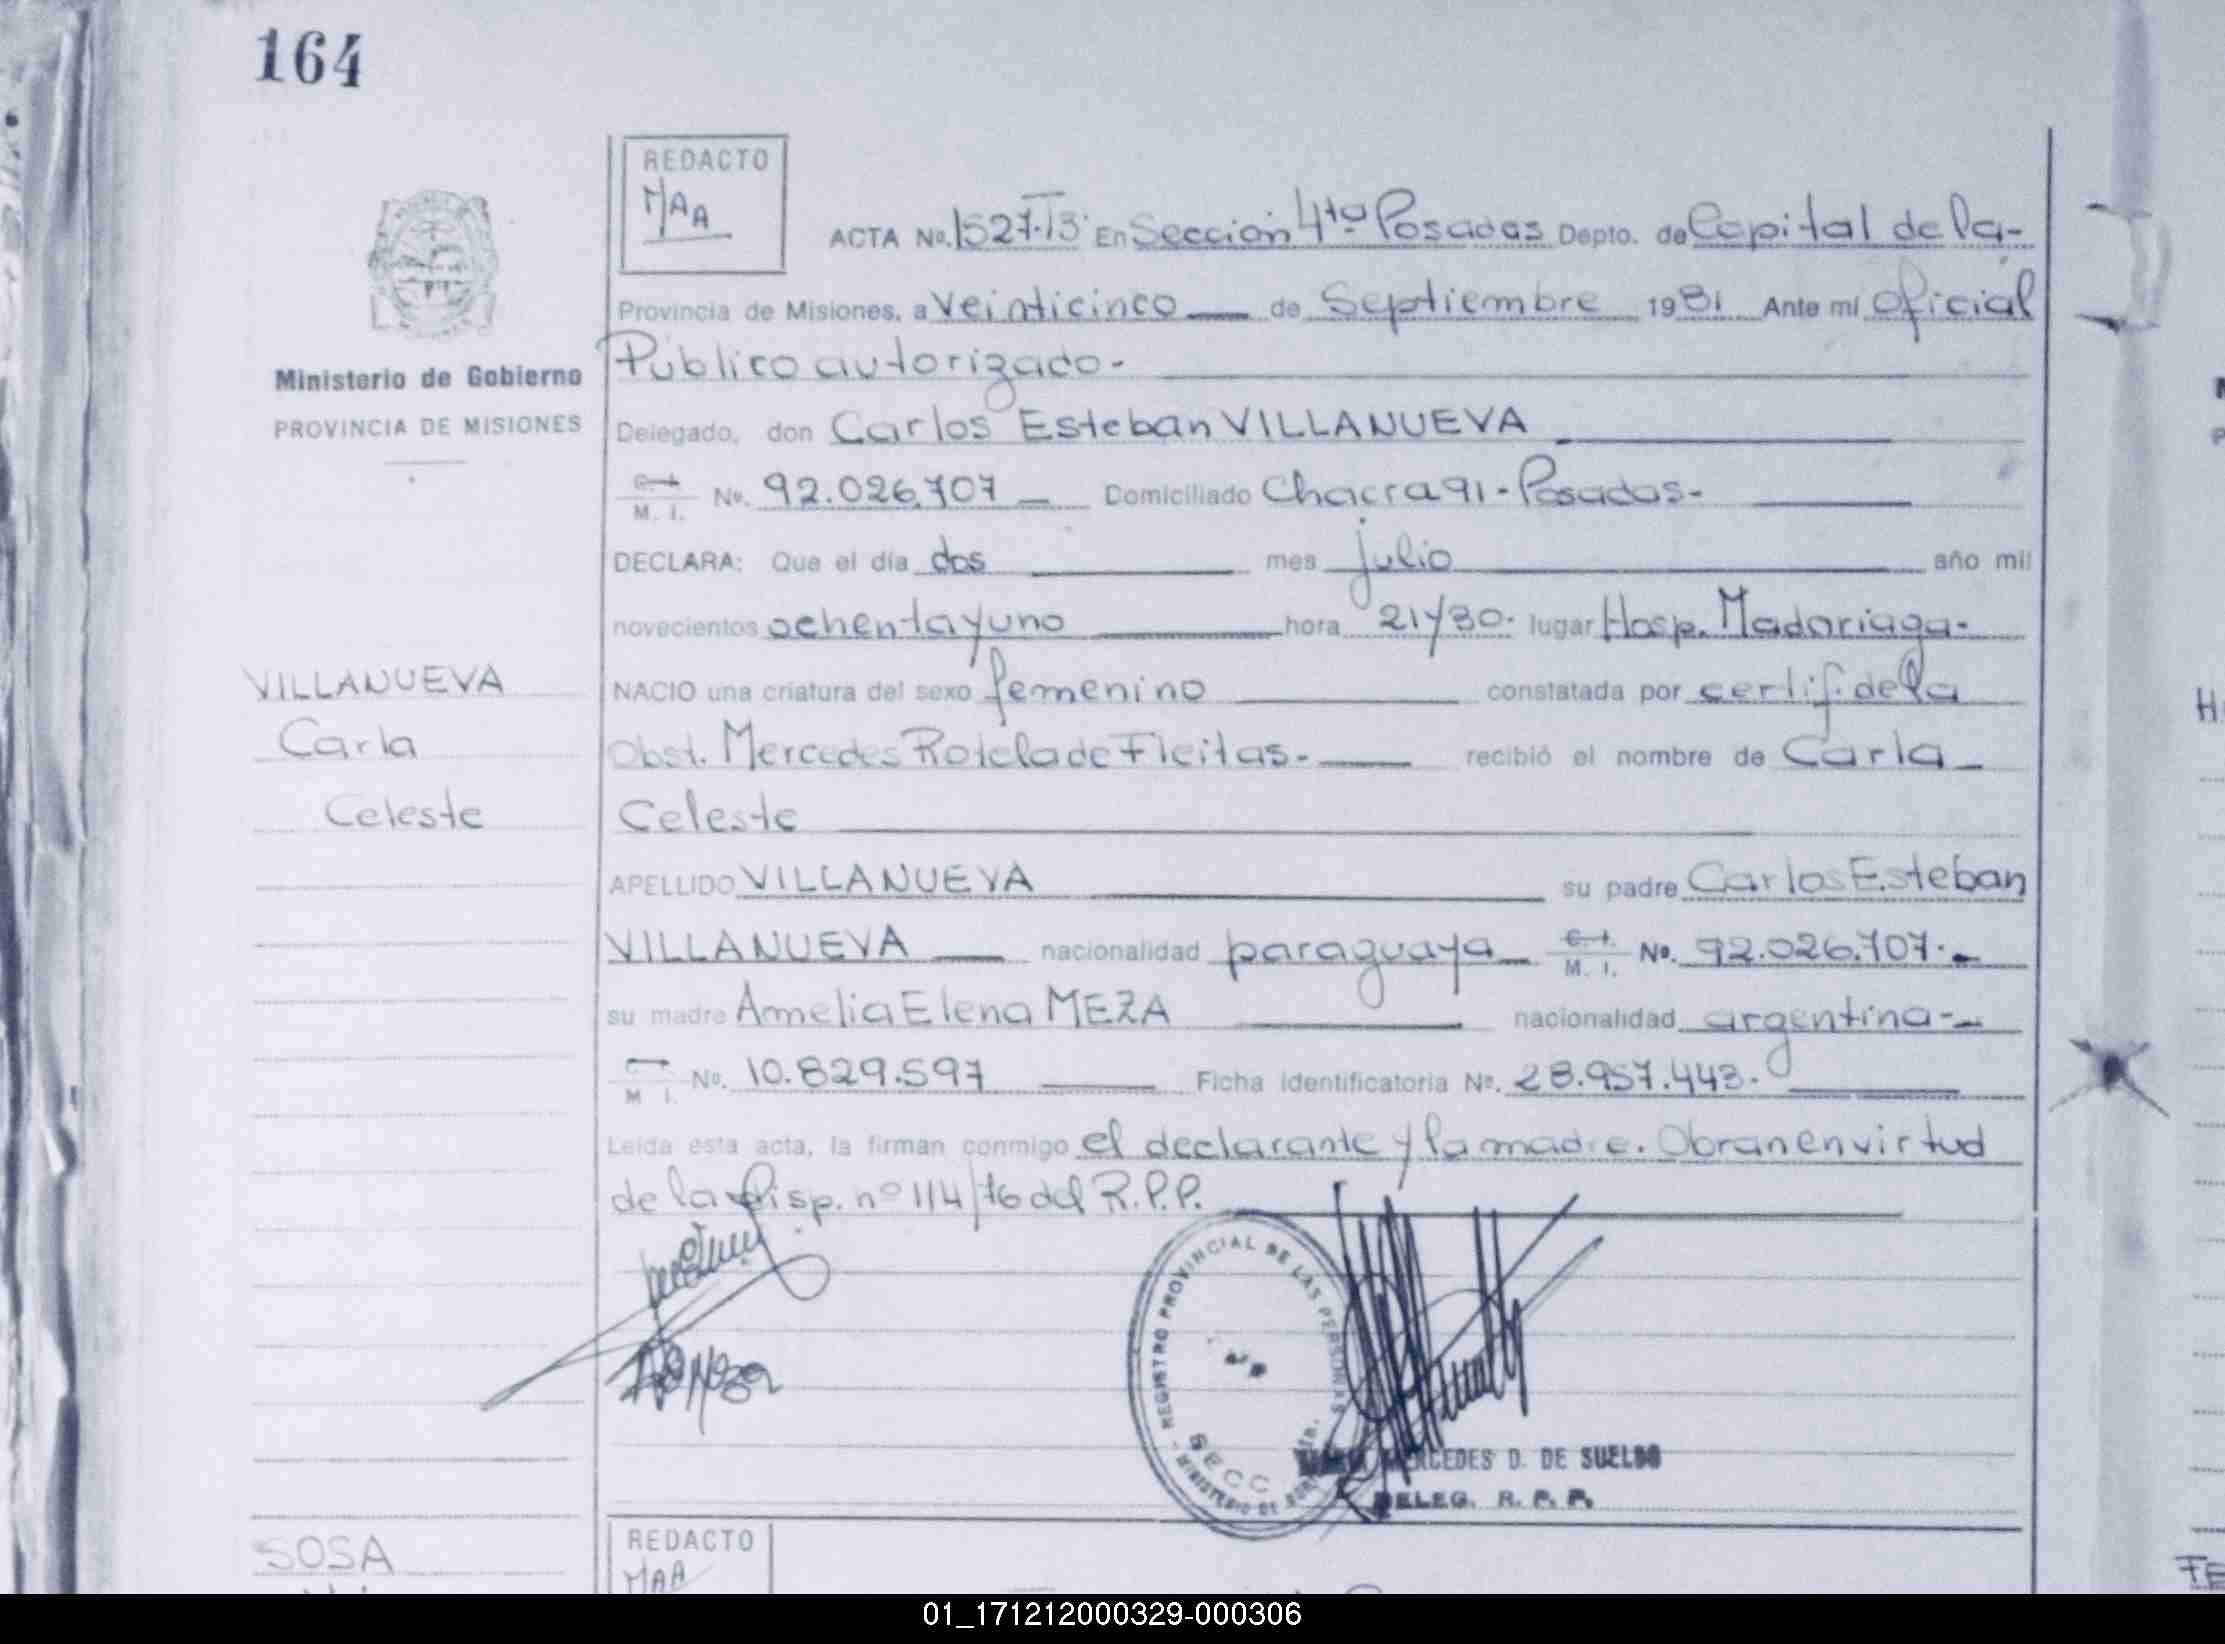 164
REDACTO
MAA
ACTA No. 1527.T3 En Sección 4ta Posadas Depto. de Capital de la-
Provincia de Misiones, a veinticinco de Septiembre 1981 Ante mi oficial
Público autorizado-
Ministerio de Gobierno
PROVINCIA DE MISIONES
Delegado, don Carlos Esteban VILLANUEVA
C. I. M. I. No. 92.026.707 Domiciliado Chacra 91 - Posadas-
DECLARA: Que el día dos mes julio año mil
novecientos ochenta y uno hora 21y30. lugar Hosp. Madariaga-
VILLANUEVA
Carla
Celeste
NACIO una criatura del sexo femenino constatada por certif. de la
Obst. Mercedes Rotela de Fleitas.- recibió el nombre de Carla
Celeste
APELLIDO VILLANUEVA su padre Carlos Esteban
VILLANUEVA nacionalidad paraguaya C. I. M. I. No. 92.026.707.-
su madre Amelia Elena MEZA nacionalidad argentina-
M I. No. 10.829.597 Ficha identificatoria No. 28.957.443.
Leída esta acta, la firman conmigo el declarante y la madre. Obran en virtud
de la Disp. nº 114/76 del R.P.P.
REGISTRO PROVINCIAL DE LAS PERSONAS
SECC.
MINISTERIO DE
MERCEDES D. DE SUELDO
DELEG. R. P. P.
SOSA
REDACTO
MAA
01_171212000329-000306